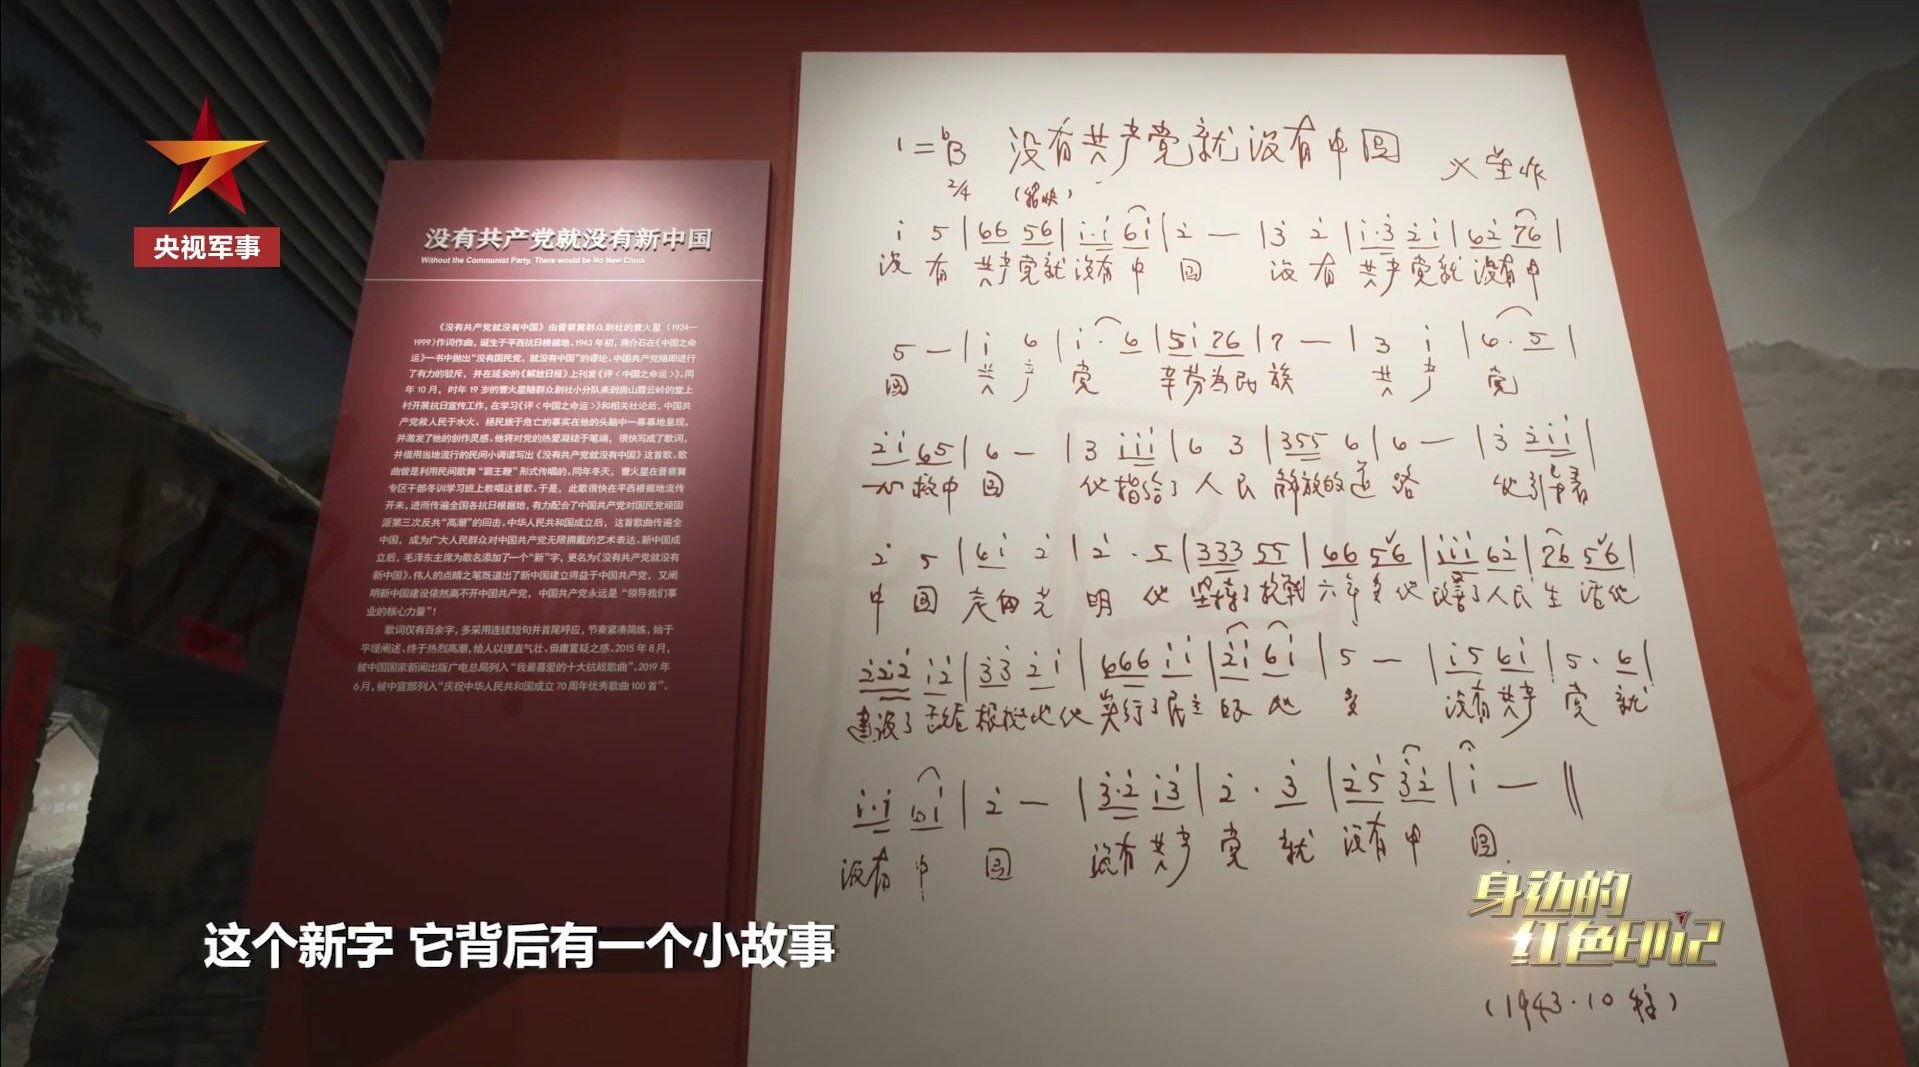 央视军事
没有共产党就没有新中国
Without the Communist Party, There would be No New China
《没有共产党就没有中国》由晋察冀群众剧社的曹火星（1924—
1999）作词作曲，诞生于平西抗日根据地。1943 年初，蒋介石在《中国之命
运》一书中抛出“没有国民党，就没有中国”的谬论。中国共产党随即进行
了有力的驳斥，并在延安的《解放日报》上刊发《评＜中国之命运＞》。同
年 10 月，时年 19 岁的曹火星随群众剧社小分队来到房山霞云岭的堂上
村开展抗日宣传工作，在学习《评＜中国之命运＞》和相关社论后，中国共
产党救人民于水火、拯民族于危亡的事实在他的头脑中一幕幕地呈现，
并激发了他的创作灵感。他将对党的热爱凝结于笔端，很快写成了歌词，
并借用当地流行的民间小调谱写出《没有共产党就没有中国》这首歌。歌
曲曾是利用民间歌舞“霸王鞭”形式传唱的。同年冬天，曹火星在晋察冀
专区干部冬训学习班上教唱这首歌。于是，此歌很快在平西根据地流传
开来，进而传遍全国各抗日根据地，有力配合了中国共产党对国民党顽固
派第三次反共“高潮”的回击。中华人民共和国成立后，这首歌曲传遍全
中国，成为广大人民群众对中国共产党无限拥戴的艺术表达。新中国成
立后，毛泽东主席为歌名添加了一个“新”字，更名为《没有共产党就没有
新中国》。伟人的点睛之笔既道出了新中国建立得益于中国共产党，又阐
明新中国建设依然离不开中国共产党，中国共产党永远是“领导我们事
业的核心力量”！
歌词仅有百余字，多采用连续短句并首尾呼应，节奏紧凑简练，始于
平缓阐述，终于热烈高潮，给人以理直气壮、毋庸置疑之感。2015 年 8 月，
被中国国家新闻出版广电总局列入“我最喜爱的十大抗战歌曲”。2019 年
6 月，被中宣部列入“庆祝中华人民共和国成立 70 周年优秀歌曲 100 首”。
1=♭B 没有共产党就没有中国 火星作
2/4 （稍快）
i 5 | 66 56 | i·i 6i | 2 — | 3 2 | i·3 2i | 62 76 |
没有 共产党就没有中 国 没有 共产党就没有中
5 — | i 6 | i· 6 | 5i 76 | 7 — | 3 i | 6· 5 |
国 共产 党 辛劳为民族 共产 党
2i 65 | 6 — | 3 iii | 6 3 | 355 6 | 6 — | 3 2ii |
一心救中国 他指给了人民 解放的道路 他引导着
2 5 | 6i 2 | 2· 5 | 333 55 | 66 56 | iii 62 | 76 56 |
中国走向光明 他坚持了抗战六年多他改善了人民生活他
222 i2 | 33 2i | 666 ii | 2i 6i | 5 — | i5 6i | 5· 6 |
建设了敌后根据地他实行了民主好处多 没有共产党就
i·i 6i | 2 — | 3·2 i3 | 2· 3 | 25 32 | i — ‖
没有中国 没有共产党就没有中国
（1943·10 稿）
身边的
红色印记
这个新字 它背后有一个小故事